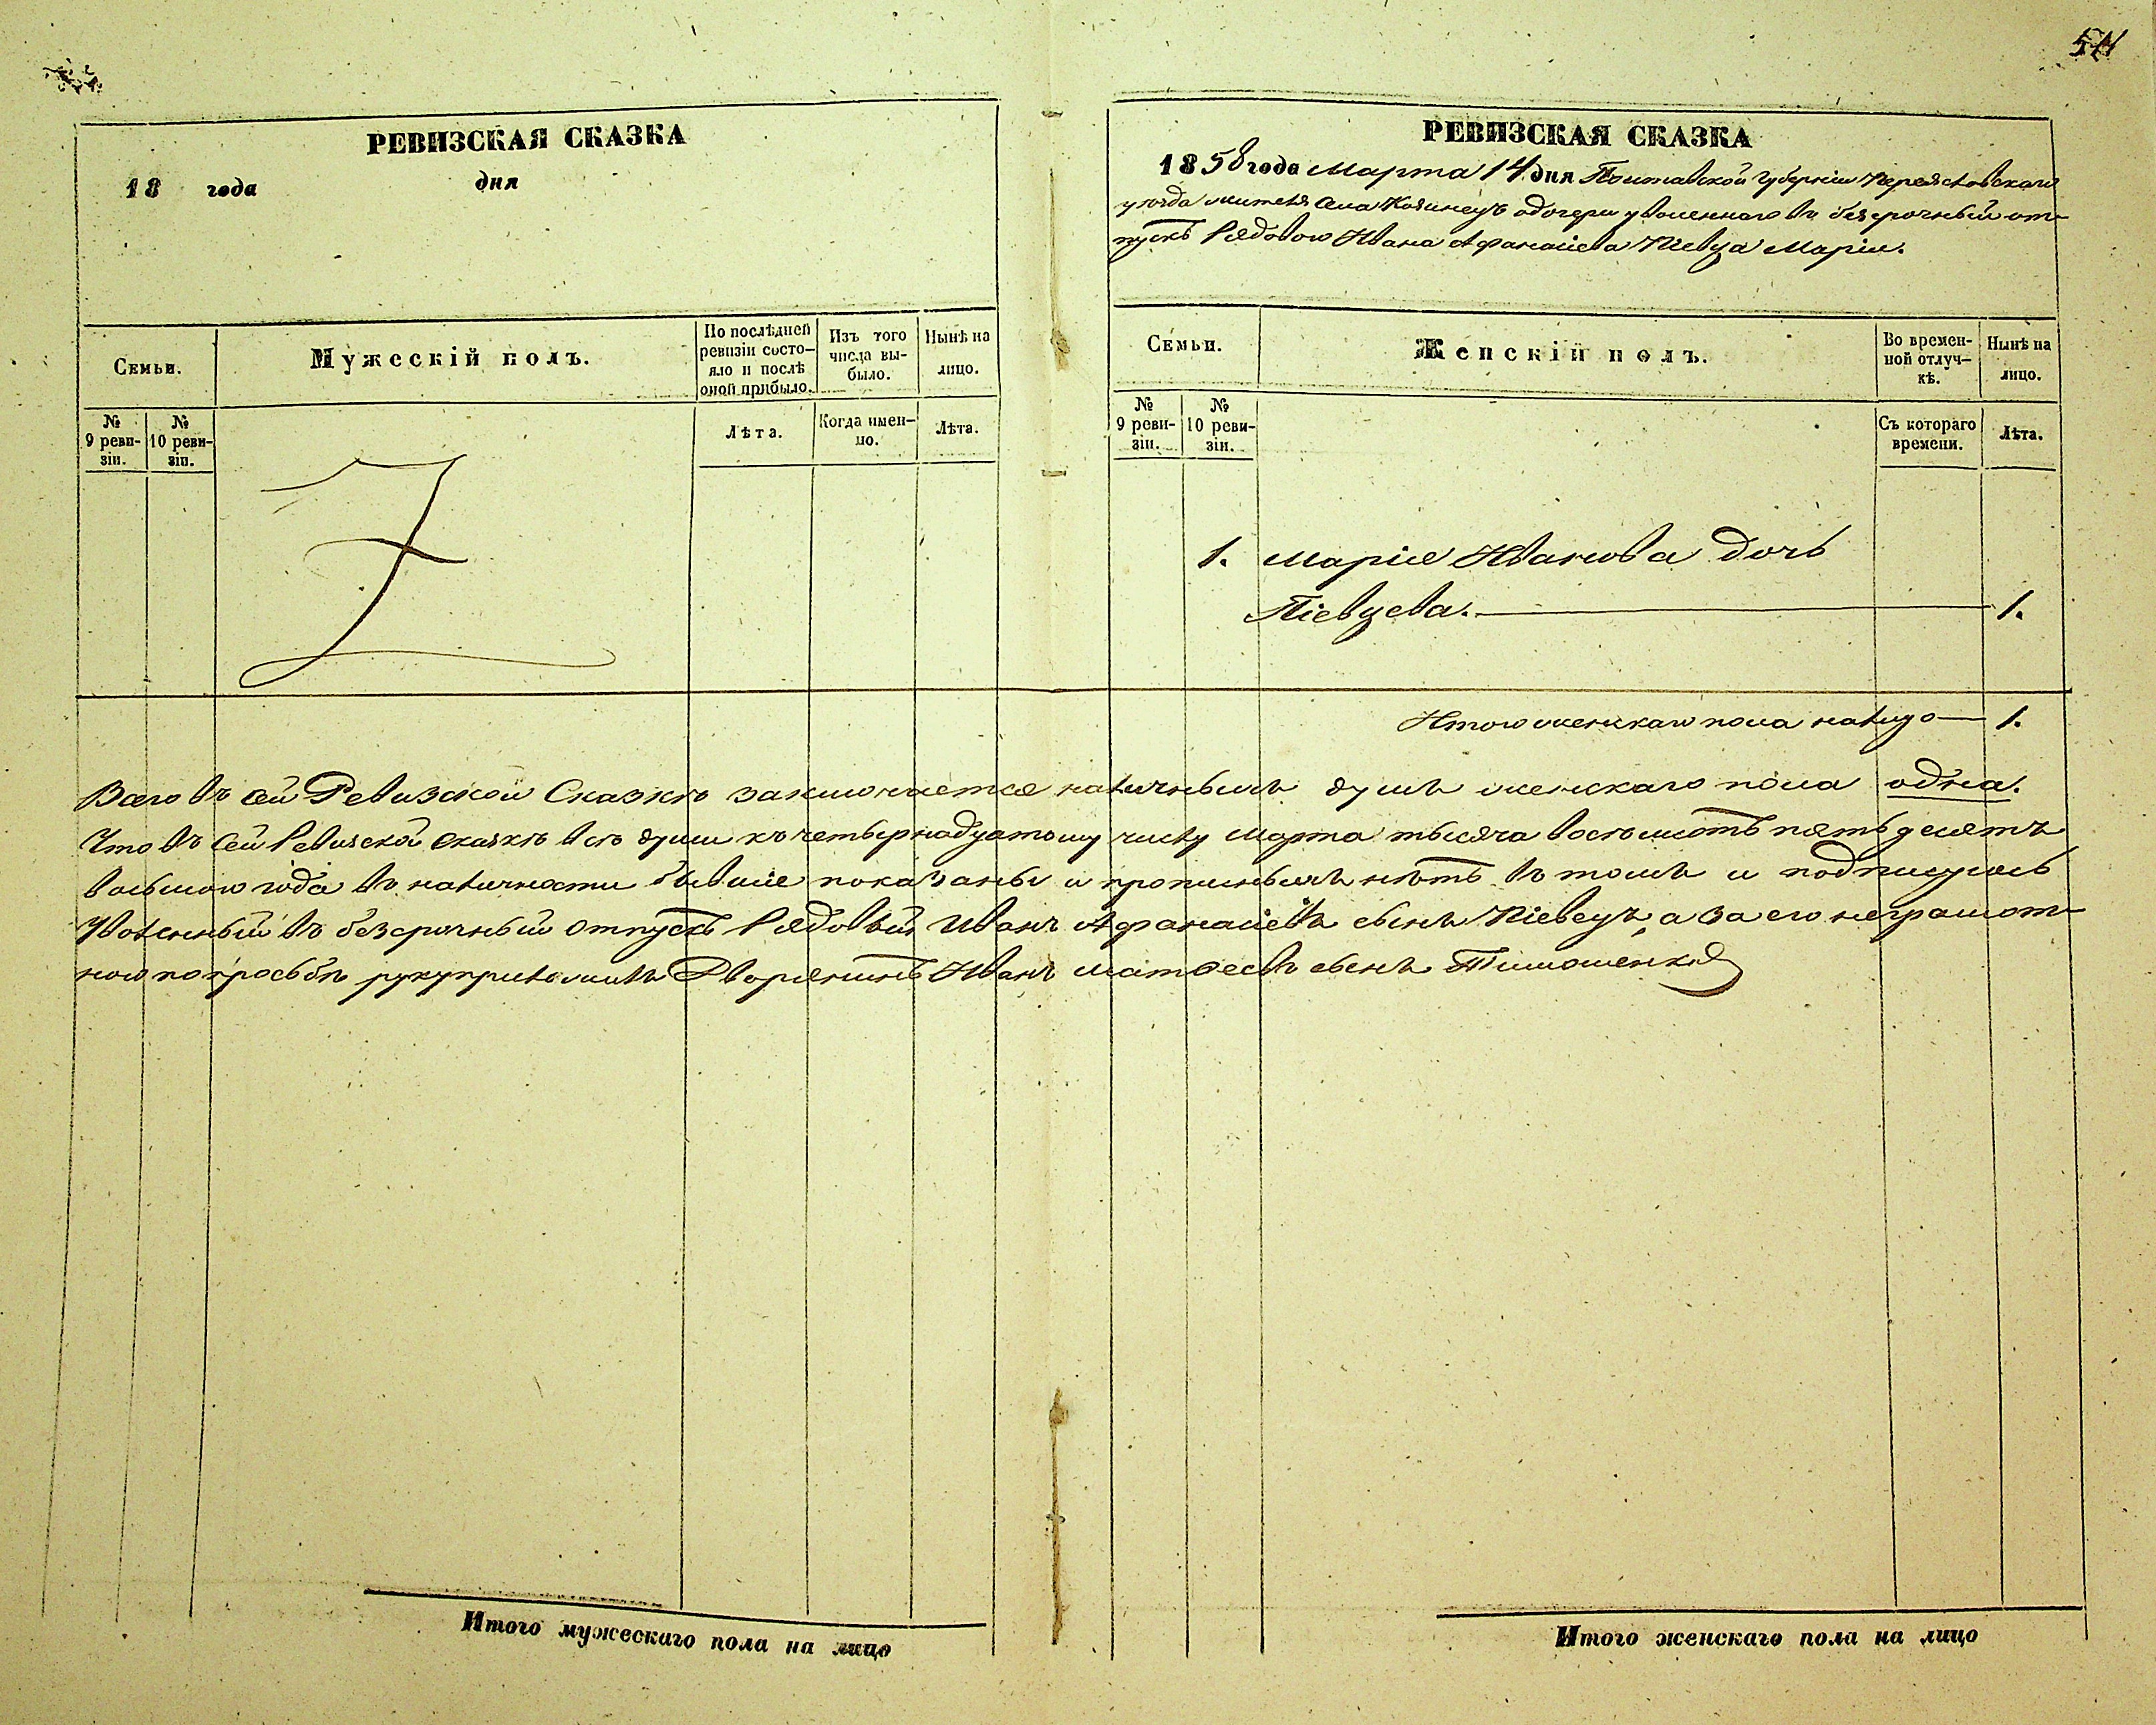 54
РЕВИЗСКАЯ СКАЗКА
18 года дня
Семьи.
Мужескій полъ.
По послѣдней ревизіи состояло и послѣ оной прибыло.
Изъ того числа выбыло.
Нынѣ на лицо.
№ 9 ревизіи.
№ 10 ревизіи.
Лѣта.
Когда именно.
Лѣта.
РЕВИЗСКАЯ СКАЗКА
1858 года Марта 14 дня Полтавской Губерніи Переяславского
уѣзда жителя села Козинецъ о дочери уволеннаго въ безсрочный от-
пускъ Рядового Ивана Афанасіева Кіевца Маріи.
Семьи.
Женскій полъ.
Во временной отлучкѣ.
Нынѣ на лицо.
№ 9 ревизіи.
№ 10 ревизіи.
Съ котораго времени.
Лѣта.
1. Марія Иванова дочь
Кіевцева. 1.
Итого женскаго пола налицо 1.
Всего въ сей Ревизской Сказкѣ заключается наличныхъ душъ женскаго пола одна.
Что въ сей Ревизской сказкѣ всѣ души къ четырнадцатому числу Марта тысяча восемьсотъ пятьдесятъ
восьмого года въ наличности бывшіе показаны и прописныхъ нѣтъ въ томъ и подписуюсь
Уволенный въ безсрочный отпускъ Рядовый Иванъ Афанасіевъ сынъ Кіевецъ, а за его неграмот-
ного по просьбѣ руку приложилъ Дворянинъ Иванъ Матвеевъ сынъ Тимошенко
Итого мужескаго пола на лицо
Итого женскаго пола на лицо